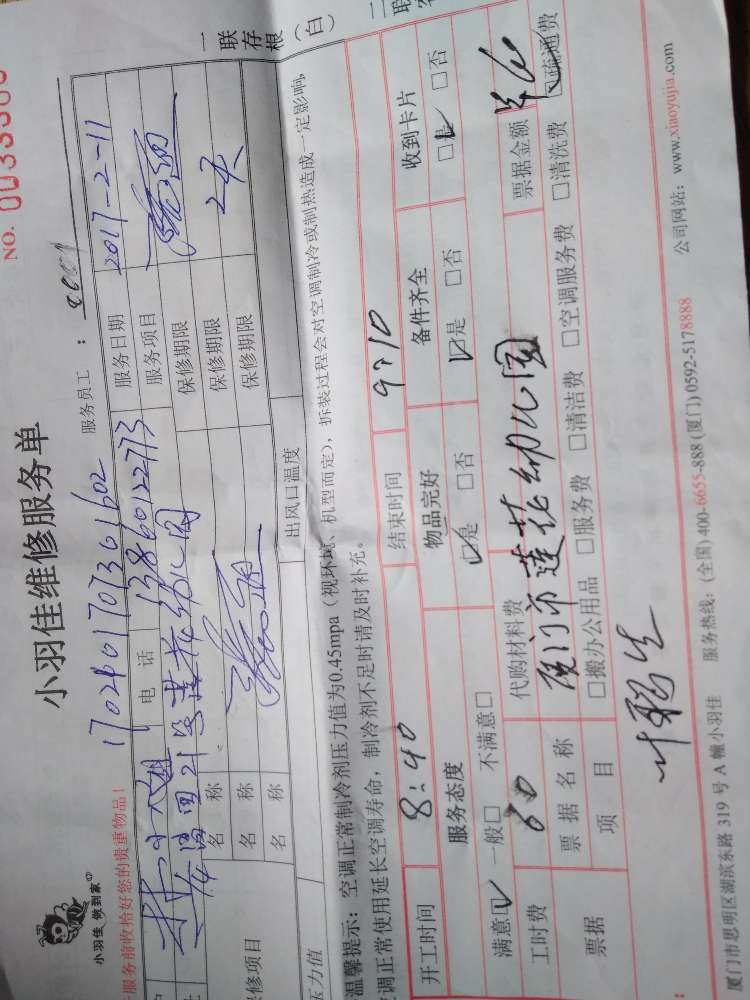 小羽佳 做到家
小羽佳维修服务单
NO. 00
一联存根（白）
服务前收拾好您的贵重物品！
服务员工：
电话 13860122773
服务日期 2017-2-11
服务项目
名称 保修期限 2天
名称 保修期限
名称 保修期限
修项目
压力值 出风口温度
温馨提示：空调正常制冷剂压力值为0.45mpa（视环境、机型而定），拆装过程会对空调制冷或制热造成一定影响，
调正常使用延长空调寿命，制冷剂不足时请及时补充。
开工时间 8:40 结束时间 9:10
服务态度 物品完好 备件齐全 收到卡片
满意☑ 一般□ 不满意□ ☑是 □否 ☑是 □否 □ □否
工时费 60 代购材料费 票据金额
票据 票据名称 厦门市莲花幼儿园
项目 □搬办公用品 □服务费 □清洁费 □空调服务费 □清洗费 □疏通费
厦门市思明区湖滨东路 319 号 A 幢小羽佳 服务热线：(全国)400-6655-888 (厦门)0592-5178888 公司网站：www.xiaoyujia.com